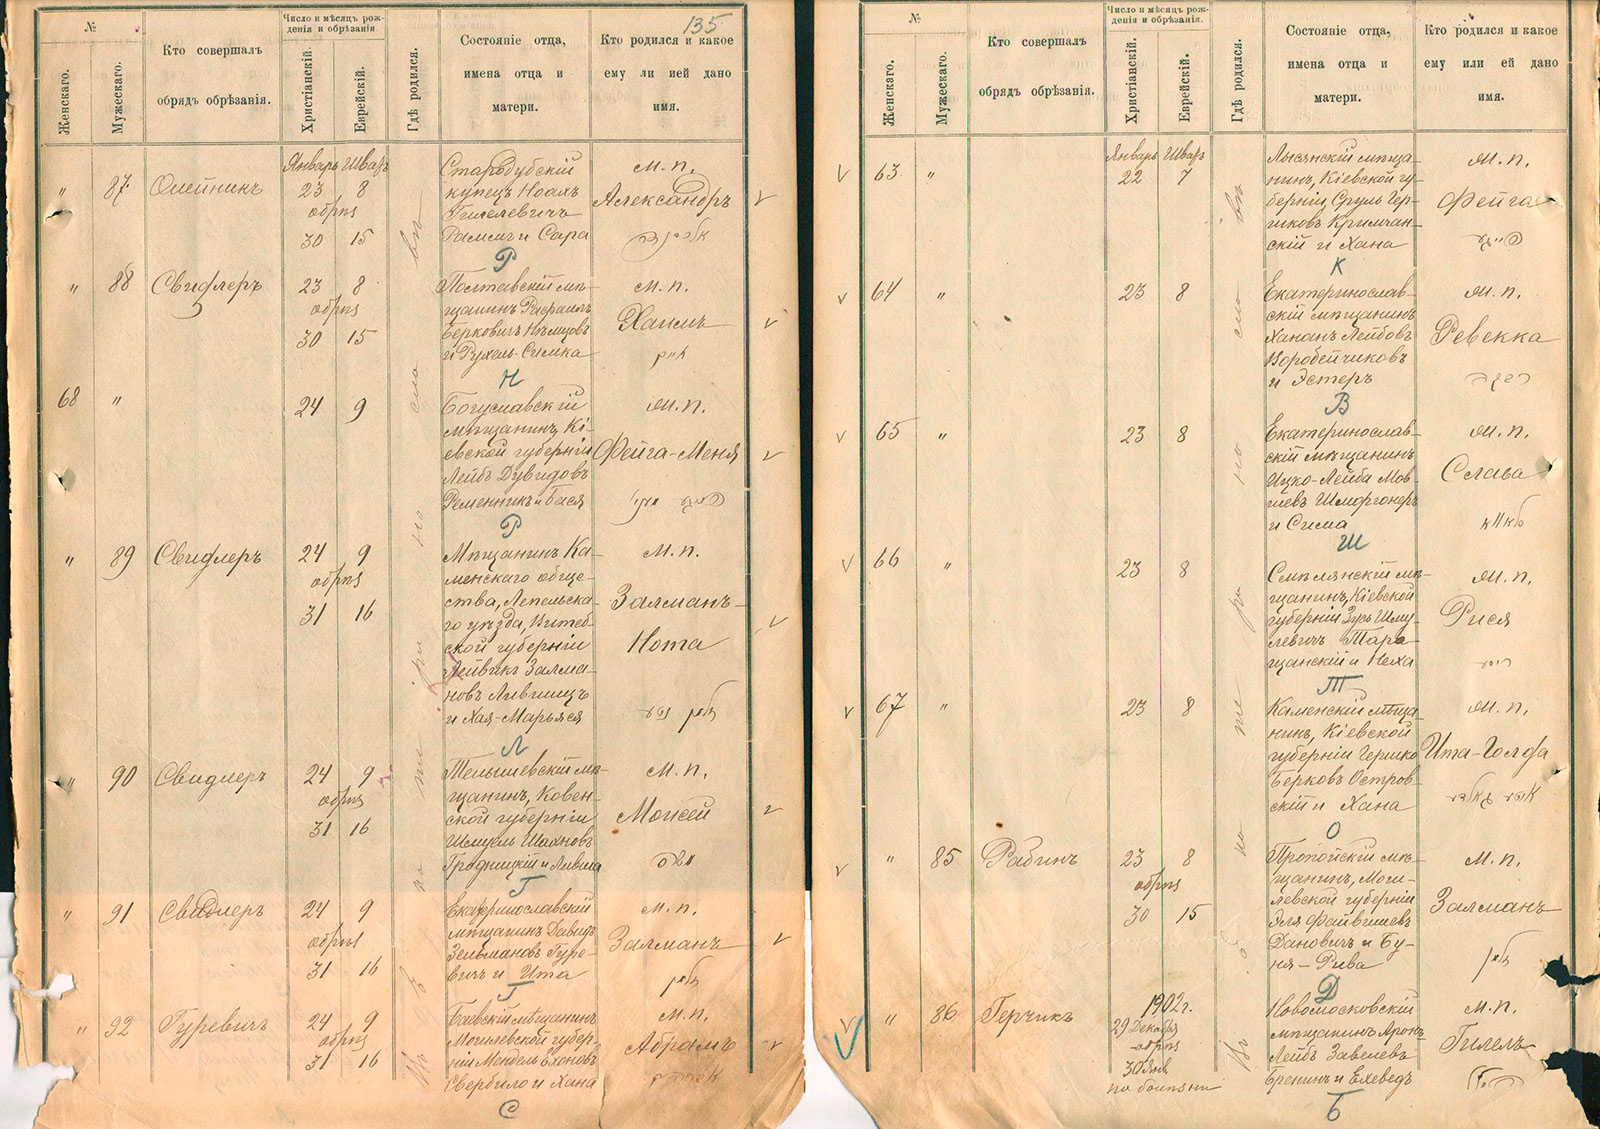 135
№
Женскаго.
Мужескаго.
Кто совершалъ
обрядъ обрѣзанія.
Число и мѣсяцъ рож-
денія и обрѣзанія.
Христіанскій.
Еврейскій.
Гдѣ родился.
Состояніе отца,
имена отца и
матери.
Кто родился и какое
ему ли ией дано
имя.
" 87. Олейникъ
Январь Шватъ
23 8
обрѣз
30 15
Стародубскій
купецъ Ноахъ
Гилелевичъ
и Сара
Р
м. п.
Александръ
" 88 Свидлеръ
23 8
обрѣз
30 15
Полтавскій мѣ-
щанинъ Рафаилъ
Берковичъ Нѣмцовъ
и Рухель-Симка
Н
м. п.
Хаимъ
חיים
68 "
24 9
Богуславскій
мѣщанинъ, Кі-
евской губерніи
Лейбъ Дувидовъ
Ременникъ и Бася
Р
м. п.
Фейга-Меня
" 89 Свидлеръ
24 9
обрѣз
31 16
Мѣщанинъ Ка-
менскаго обще-
ства, Лепельска-
го уѣзда, Витеб-
ской губерніи
Лейвикъ Залма-
новъ Лившицъ
и Хая-Марьяся
Л
м. п.
Залманъ-
Нота
" 90 Свидлеръ
24 9
обрѣз
31 16
Тельшевскій мѣ-
щанинъ, Ковен-
ской губерніи
Шмуель Шахновъ
Гродницкій и
Г
м. п.
Моисей
משה
" 91 Свидлеръ
24 9
обрѣз
31 16
Екатеринославскій
мѣщанинъ Давидъ
Зельмановъ Гуре-
вичъ и Ита
Г
м. п.
Залманъ
" 92 Гуревичъ
24 9
обрѣз
31 16
Баевскій мѣщанинъ
Могилевской губер-
ніи Мендель Елоновъ
Свербило и Хана
С
м. п.
Абрамъ
№
Женскаго.
Мужескаго.
Кто совершалъ
обрядъ обрѣзанія.
Число и мѣсяцъ рож-
денія и обрѣзанія.
Христіанскій.
Еврейскій.
Гдѣ родился.
Состояніе отца,
имена отца и
матери.
Кто родился и какое
ему или ей дано
имя.
63 "
Январь Шватъ
22 7
Лысянскій мѣща-
нинъ, Кіевской гу-
берніи, Сруль Гер-
шковъ Кримчан-
скій и Хана
К
м. п.
Фейга
64 "
23 8
Екатеринослав-
скій мѣщанинъ
Хананъ Лейбовъ
Воробейчиковъ
и Эстеръ
В
м. п.
Ревекка
רבקה
65 "
23 8
Екатеринослав-
скій мѣщанинъ
Ицко-Лейба Мов-
шевъ Шморгонеръ
и Сима
Ш
м. п.
Слава
66 "
23 8
Смѣлянскій мѣ-
щанинъ, Кіевской
губерніи Зусь Шму-
левичъ Тара-
щанскій и Неха
Т
м. п.
Рися
67 "
23 8
Каменскій мѣща-
нинъ, Кіевской
губерніи Гершко
Берковъ Остров-
скій и Хана
О
м. п.
Ита-Голда
" 85 Рабинъ
23 8
обрѣз
30 15
Пропойскій мѣ-
щанинъ, Моги-
левской губерніи
Эля Файвишевъ
Дановичъ и Бу-
ня-Рива
Д
м. п.
Залманъ
" 86 Герчикъ
1902 г.
29 Декабря
обрѣз
30 Янв
по болѣзни
Новомосковскій
мѣщанинъ Аронъ-
Лейбъ Завелевъ
Бренинъ и Ехеведъ
Б
м. п.
Гилель